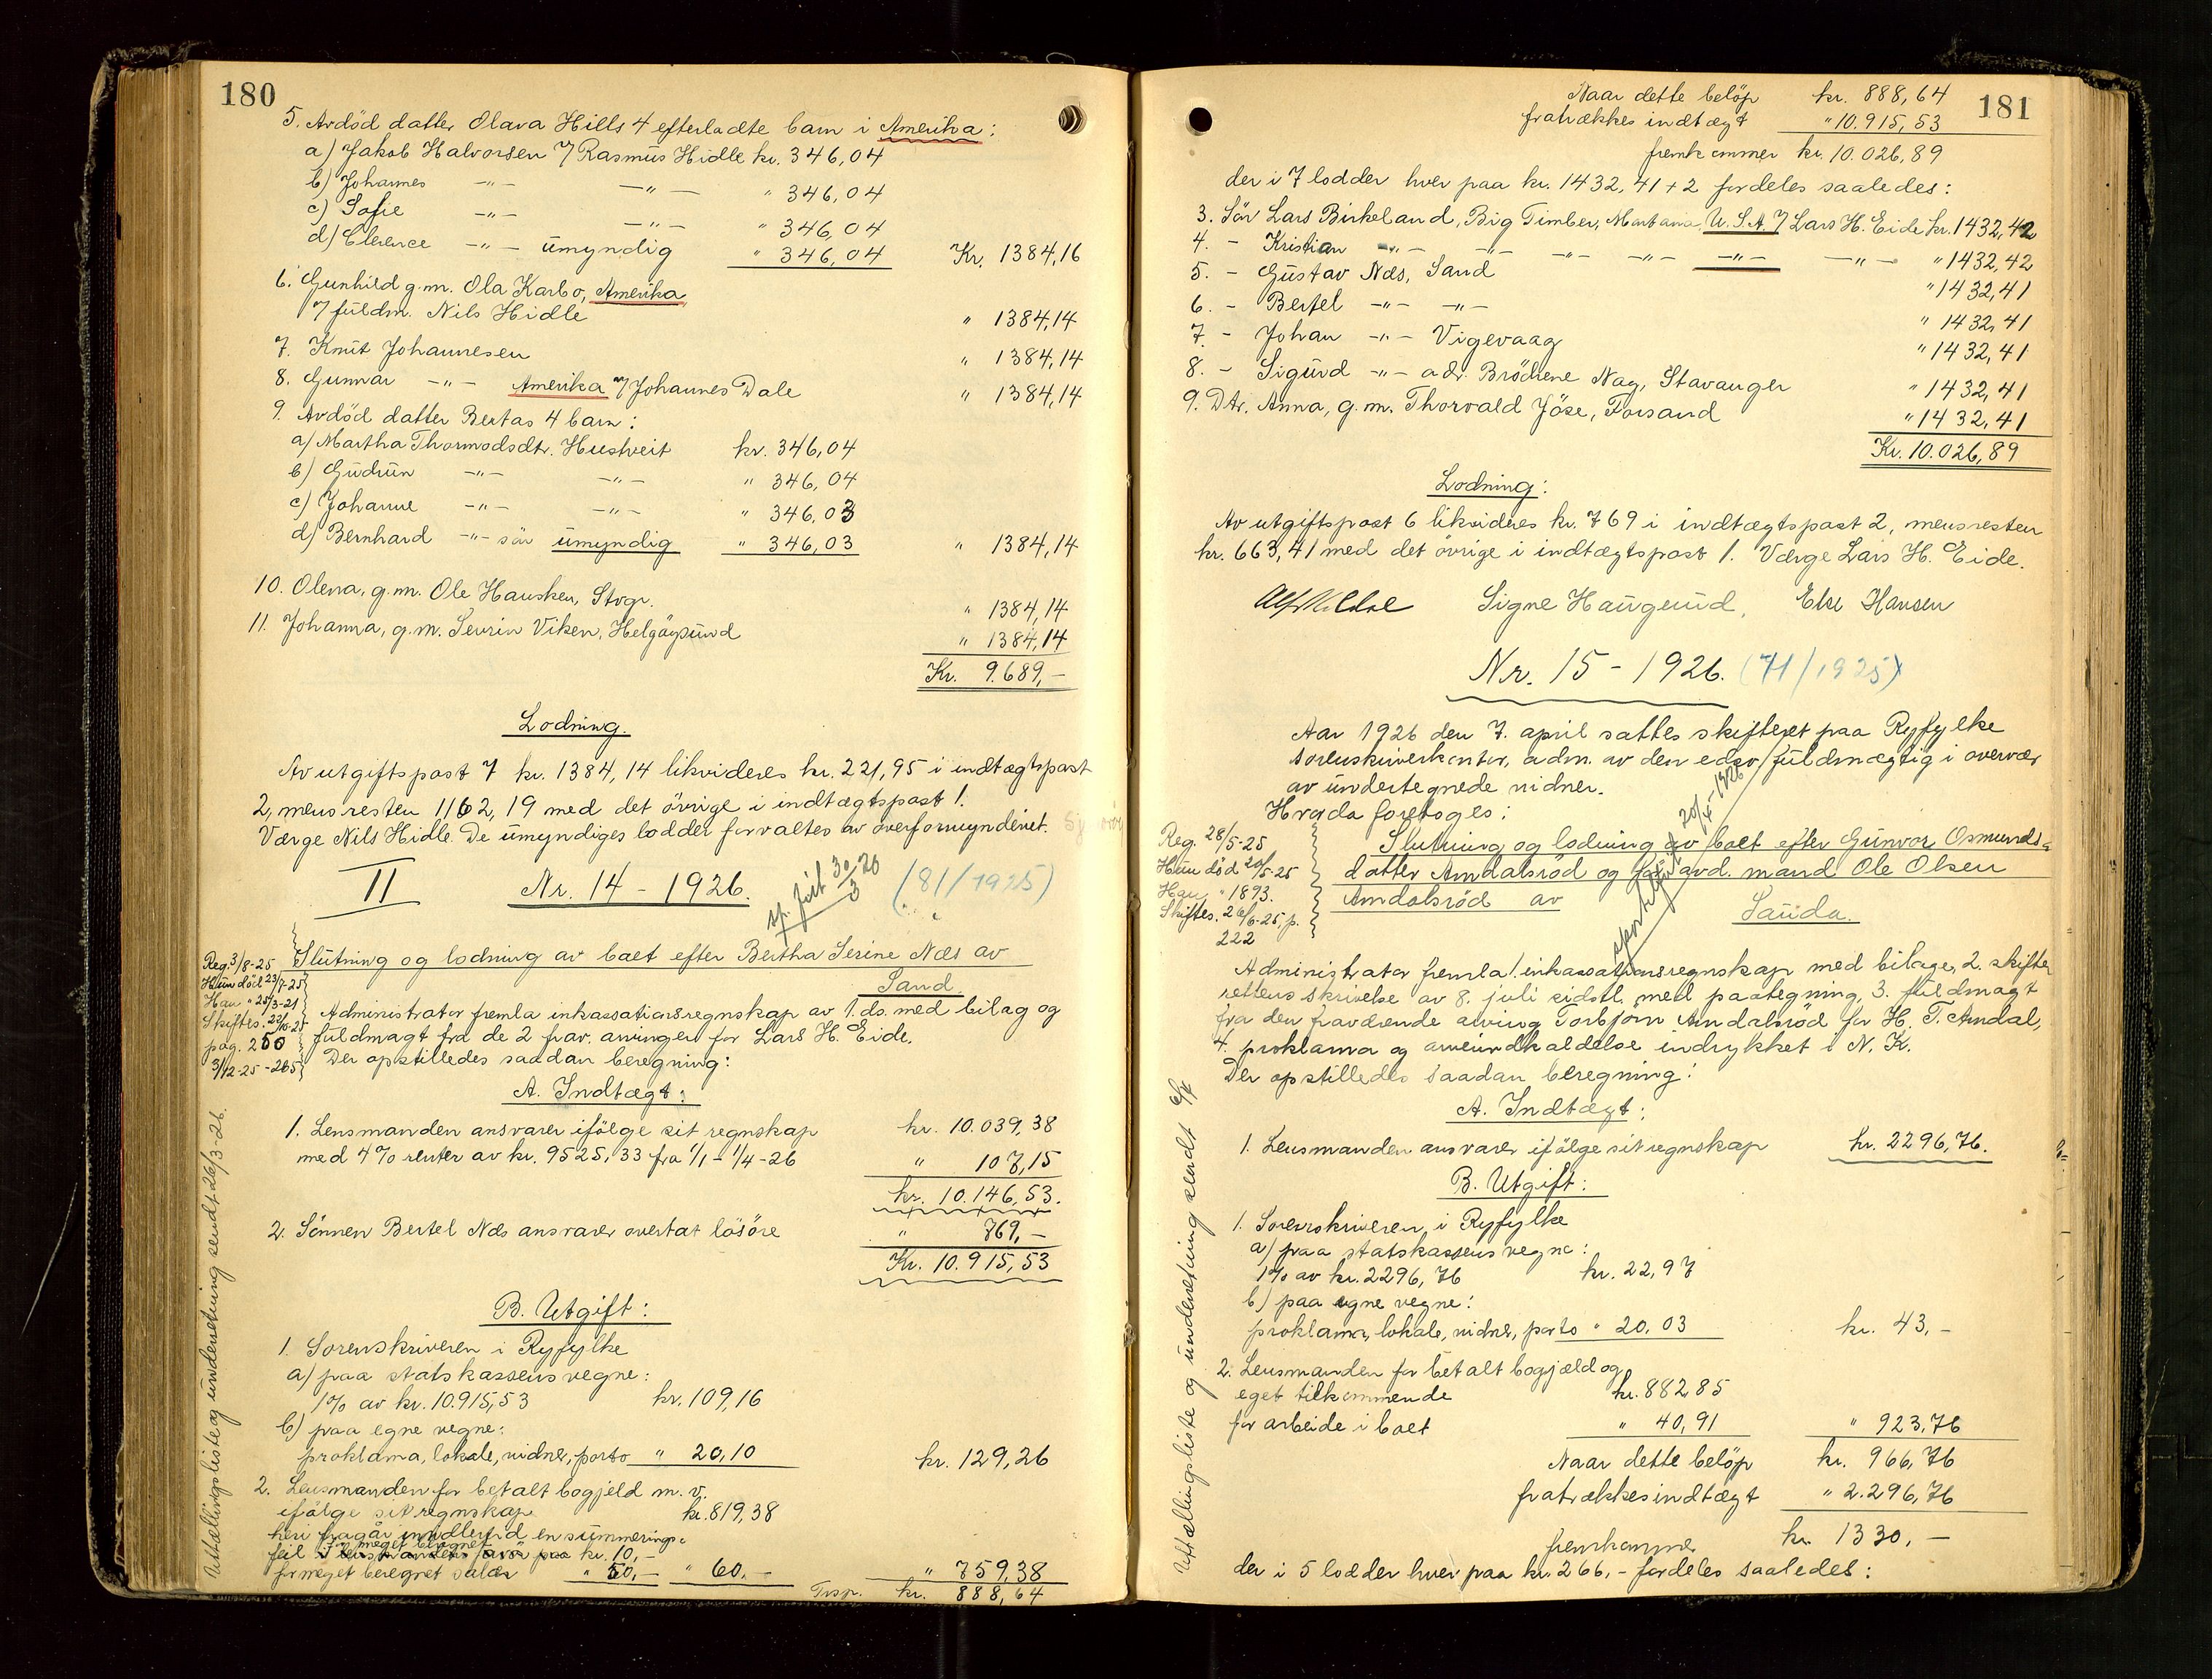 180
5. Avdöd datter Olava Hills 4 efterladte barn i Amerika:
a) Jakob Halvorsen 7/ Rasmus Hidle kr. 346,04
b) Johannes -"- -"- " 346,04
c) Sofie -"- -"- " 346,04
d) Clerence -"- umyndig " 346,04 Kr. 1384,16
6. Gunhild g.m. Ola Karbo, Amerika
7/ fuldm. Nils Hidle " 1384,14
7. Knut Johannesen " 1384,14
8. Gunnar -"- Amerika 7/ Johannes Dale " 1384,14
9. Avdöd datter Bertas 4 barn:
a) Martha Thormodsdtr. Hustveit kr. 346,04
b) Gudrun -"- -"- " 346,04
c) Johanne -"- -"- " 346,03
d) Bernhard -"- sön umyndig " 346,03 " 1384,14
10. Olena, g.m. Ole Hausken, Stvgr. " 1384,14
11. Johanna, g.m. Sevrin Viken, Helgöysund " 1384,14
Kr. 9.689,-
Lodning.
Av utgiftspost 7 kr. 1384,14 likvideres kr. 221,95 i indtægtspost
2, mens resten 1162,19 med det övrige i indtægtspost 1.
Værge Nils Hidle. De umyndiges lodder forvaltes av overformynderiet.
II Nr. 14 - 1926. (81/1925)
Reg. 3/8-25
Hun död 23/7-25
Han " 25/3-21
Skiftes. 22/10-25
pag. 250
3/12-25 - 265
Slutning og lodning av boet efter Bertha Serine Næs av
Sand.
Administrator fremla inkassationsregnskap av 1. ds. med bilag og
fuldmagt fra de 2 frav. arvinger for Lars H. Eide.
Der opstilledes saadan beregning:
A. Indtægt:
1. Lensmanden ansvarer ifölge sit regnskap kr. 10.039,38
med 4% renter av kr. 9525,33 fra 1/1 - 1/4-26 " 107,15
kr. 10.146,53.
2. Sönnen Bertel Næs ansvarer overtat lösöre " 769,-
Kr. 10.915,53
B. Utgift:
1. Sorenskriveren i Ryfylke
a) paa statskassens vegne:
1% av kr. 10.915,53 kr. 109,16
b) paa egne vegne:
proklama, lokale, vidner, porto " 20,10 kr. 129,26
2. Lensmanden for betalt bogjeld m.v.
ifölge sit regnskap kr. 819,38
heri fragår imidlertid en summerings-
feil kr. 10,-
for meget beregnet salær " 50,- " 60,- " 759,38
Trsp. kr. 888,64
Utlællingsliste og underretning sendt 26/3-26.
181
Naar dette belöp kr. 888,64
fratrækkes indtægt " 10.915,53
fremkommer kr. 10.026,89
der i 7 lodder hver paa kr. 1432,41 + 2 fordeles saaledes:
3. Sön Lars Birkeland, Big Timber, Montana, U.S.A. 7/ Lars H. Eide kr. 1432,42
4. - Kristian -"- -"- -"- -"- -"- -"- " 1432,42
5. - Gustav Næs, Sand " 1432,41
6. - Bertel -"- -"- " 1432,41
7. - Johan -"- Vigevaag " 1432,41
8. - Sigurd -"- adr. Brödrene Nag, Stavanger " 1432,41
9. Dtr. Anna, g.m. Thorvald Jöse, Forsand " 1432,41
Kr. 10.026,89
Lodning:
Av utgiftspost 6 likvideres kr. 769 i indtægtspost 2, mens resten
kr. 663,41 med det övrige i indtægtspost 1. Værge Lars H. Eide.
Signe Haugeund, Else Hansen
Nr. 15 - 1926. (71/1925)
Aar 1926 den 7. april sattes skifteret paa Ryfylke
sorenskriverkontor, adm. av den edsv. fuldmægtig i overvær
av undertegnede vidner.
Hvorda foretoges:
Reg. 28/5-25
Hun död 20/5-25
Han " 1893.
Skiftes. 26/6-25, p.
222
Slutning og lodning av boet efter Gunvor Osmunds-
datter Amdalsröd og för avd. mand Ole Olsen
Amdalsröd av Sauda.
Administrator fremla 1. inkassationsregnskap med bilage, 2. skifte-
rettens skrivelse av 8. juli sidstl. med paategning, 3. fuldmagt
fra den fraværende arving Torbjörn Amdalsröd for H. T. Amdal,
4. proklama og arveindkaldelse indrykket i N. K.
Der opstilledes saadan beregning:
A. Indtægt:
1. Lensmanden ansvarer ifölge sit regnskap kr. 2296,76.
B. Utgift:
1. Sorenskriveren i Ryfylke
a) paa statskassens vegne:
1% av kr. 2296,76 kr. 22,97
b) paa egne vegne:
proklama, lokale, vidner, porto " 20,03 kr. 43,-
2. Lensmanden for betalt bogjæld og
eget tilkommende kr. 882,85
for arbeide i boet " 40,91 " 923,76
Naar dette belöp kr. 966,76
fratrækkes indtægt " 2.296,76
fremkommer kr. 1330,-
der i 5 lodder hver paa kr. 266,- fordeles saaledes:
Utlællingsliste og underretning sendt